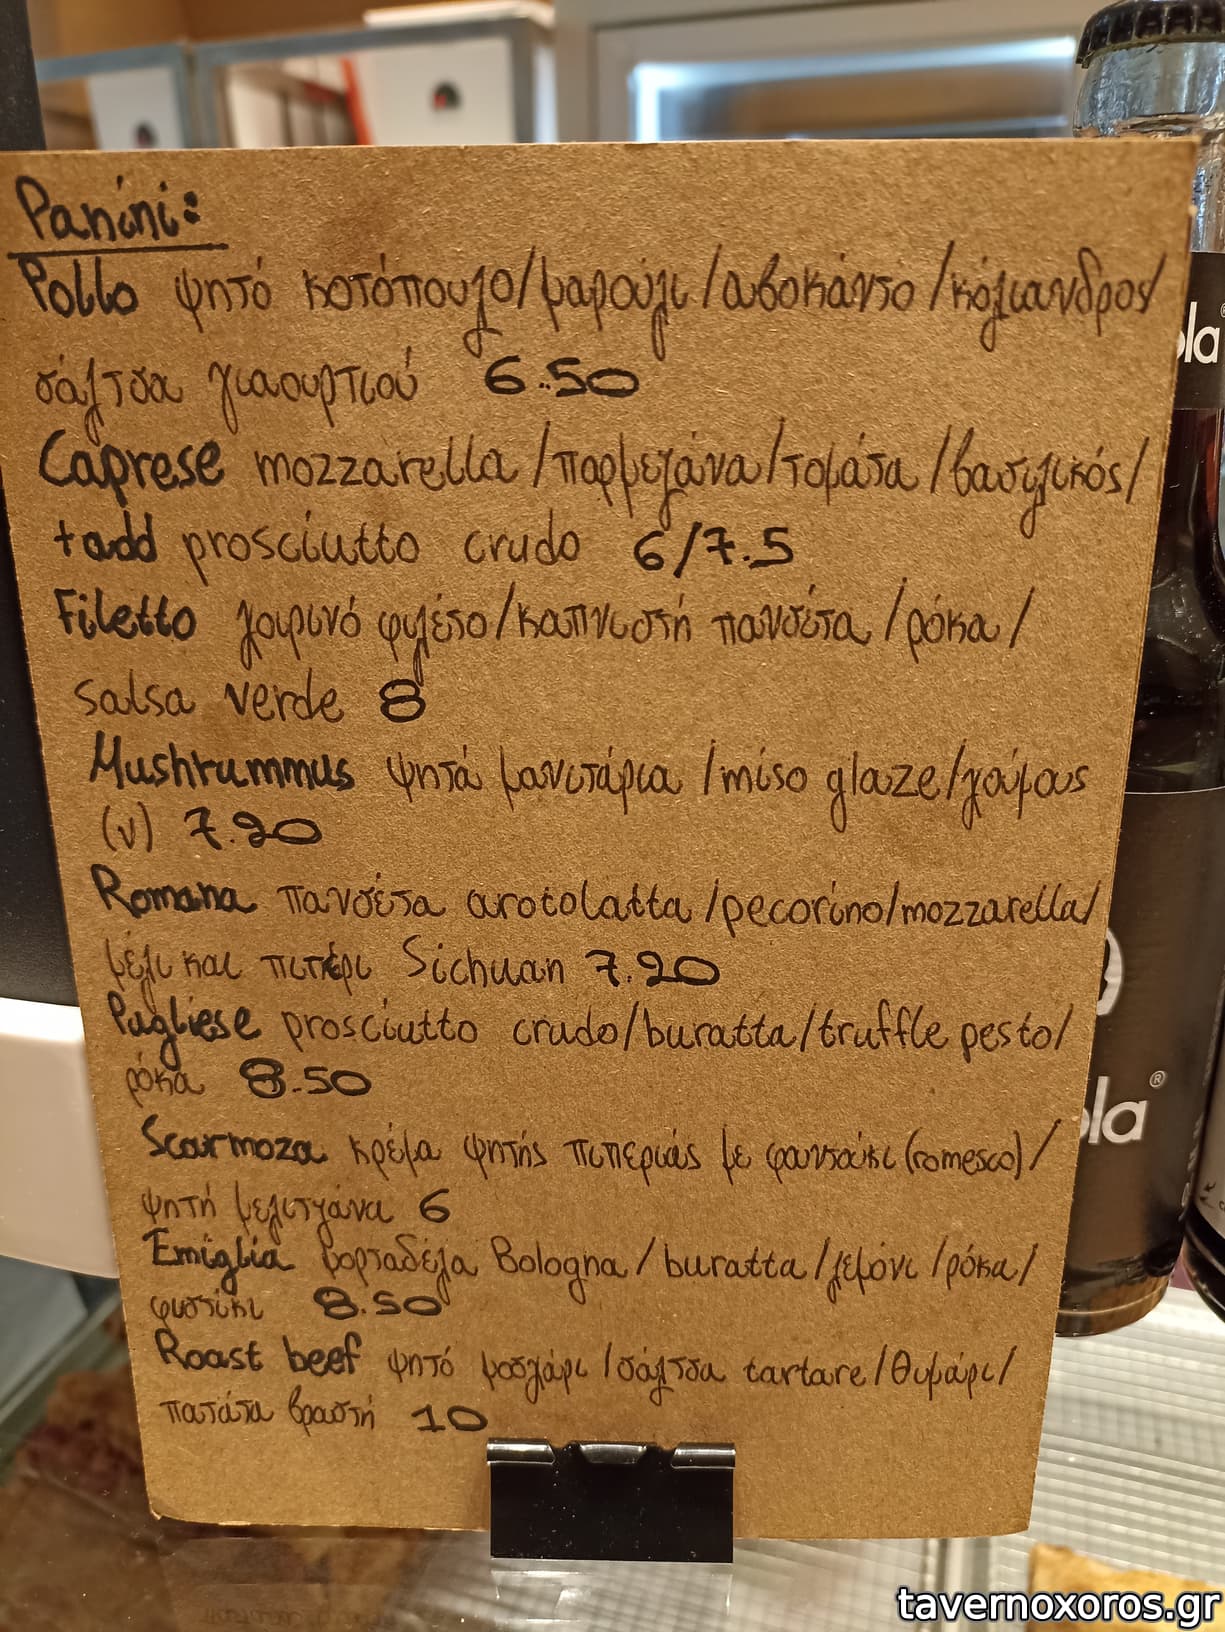 Panini:
Pollo ψητό κοτόπουλο/μαρούλι/αβοκάντο/κόλιανδρος/
σάλτσα γιαουρτιού 6.50
Caprese mozzarella/παρμεζάνα/τομάτα/βασιλικός/
+add prosciutto crudo 6/7.5
Filetto χοιρινό φιλέτο/καπνιστή πανσέτα/ρόκα/
salsa verde 8
Mushrummus ψητά μανιτάρια/miso glaze/χούμους
(v) 7.20
Romana πανσέτα arotolatta/pecorino/mozzarella/
μέλι και πιπέρι Sichuan 7.20
Pugliese prosciutto crudo/buratta/truffle pesto/
ρόκα 8.50
Scarmoza κρέμα ψητής πιπεριάς με φουντούκι (romesco)/
ψητή μελιτζάνα 6
Emiglia μορταδέλα Bologna/buratta/λεμόνι/ρόκα/
φυστίκι 8.50
Roast beef ψητό μοσχάρι/σάλτσα tartare/θυμάρι/
πατάτα βραστή 10
ola
ola
tavernoxoros.gr